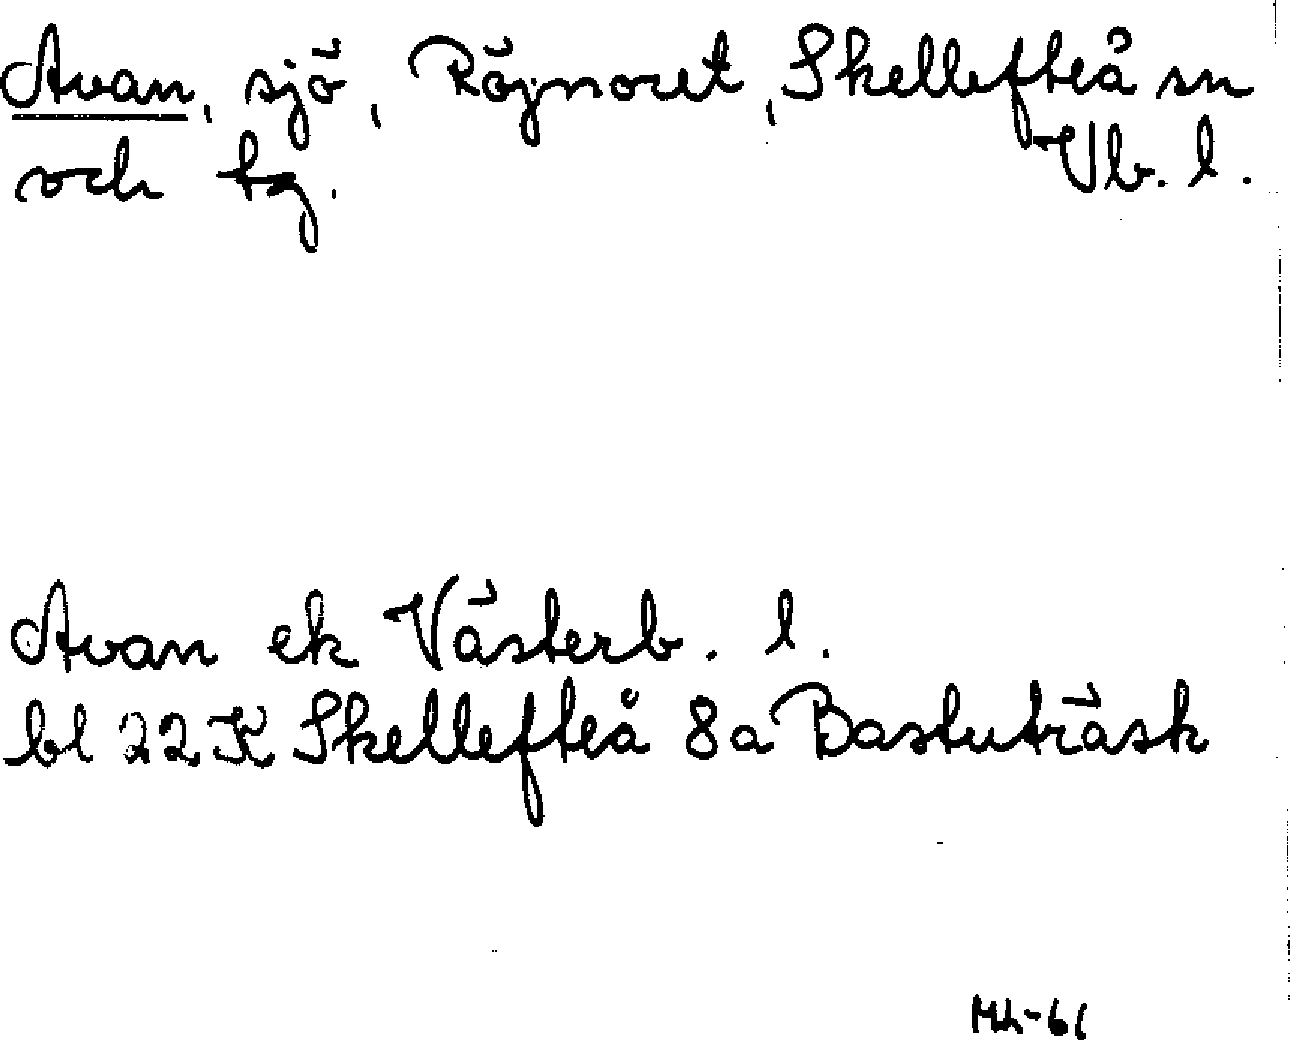 Avan, sjö, Röjnoret, Skellefteå sn
och bg. Vb. l.
Avan ek Västerb. l.
bl 22K Skellefteå 8a Bastuträsk